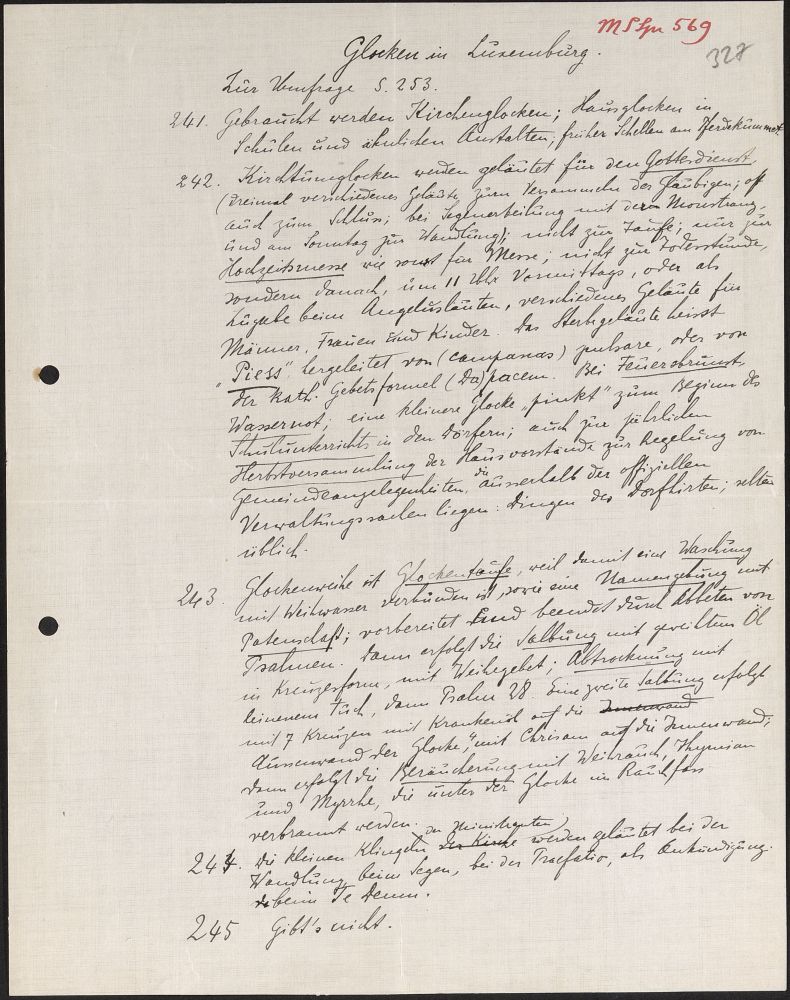 MS Lu 569
327
Glocken in Luxemburg.
Zur Umfrage S. 253.
241. Gebraucht werden Kirchenglocken; Hausglocken in
Schulen und ähnlichen Anstalten, früher Schellen am Pferdekummet.
242. Kirchturmglocken werden geläutet für den Gottesdienst
(dreimal verschiedenes Geläute zum Versammeln der Gläubigen; oft
auch zum Schluss; bei Segenerteilung mit der Monstranz,
und am Sonntag zur Wandlung); nicht zur Taufe; nur zur
Hochzeitsmesse wie sonst für Messe; nicht zur Todesstunde,
sondern danach, um 11 Uhr Vormittags, oder als
Zugabe beim Angelusläuten, verschiedenes Geläute für
Männer, Frauen und Kinder. Das Sterbegeläute heisst
"Piess", hergeleitet von (campanas) pulsare, oder von
der kath. Gebetsformel (Da) pacem. Bei Feuersbrunst,
Wassernot; eine kleinere Glocke "pinkt" zum Beginn des
Schulunterrichts in den Dörfern; auch zur jährlichen
Herbstversammlung der Hausvorstände zur Regelung von
Gemeindeangelegenheiten, die ausserhalb der offiziellen
Verwaltungssachen liegen: Dingen des Dorfhirten; selten
üblich.
243. Glockenweihe ist Glockentaufe, weil damit eine Waschung
mit Weihwasser verbunden ist, sowie eine Namengebung mit
Patenschaft; vorbereitet und beendet durch Abbeten von
Psalmen. Dann erfolgt die Salbung mit geweiltem Öl
in Kreuzesform, mit Weihegebet; Abtrocknung mit
leinenem Tuch, dann Psalm 28. Eine zweite Salbung erfolgt
mit 7 Kreuzen mit Krankenöl auf die Innenwand
Aussenwand der Glocke, mit Chrisam auf die Innenwand;
dann erfolgt die Beräucherung mit Weihrauch, Thymian
und Myrrhe, die unter der Glocke im Rauchfass
verbrannt werden.
244. Die kleinen Klingeln der Kirche der Ministranten werden geläutet bei der
Wandlung, beim Segen, bei der Praefatio, als Ankündigung.
beim Te Deum.
245 Gibt's nicht.